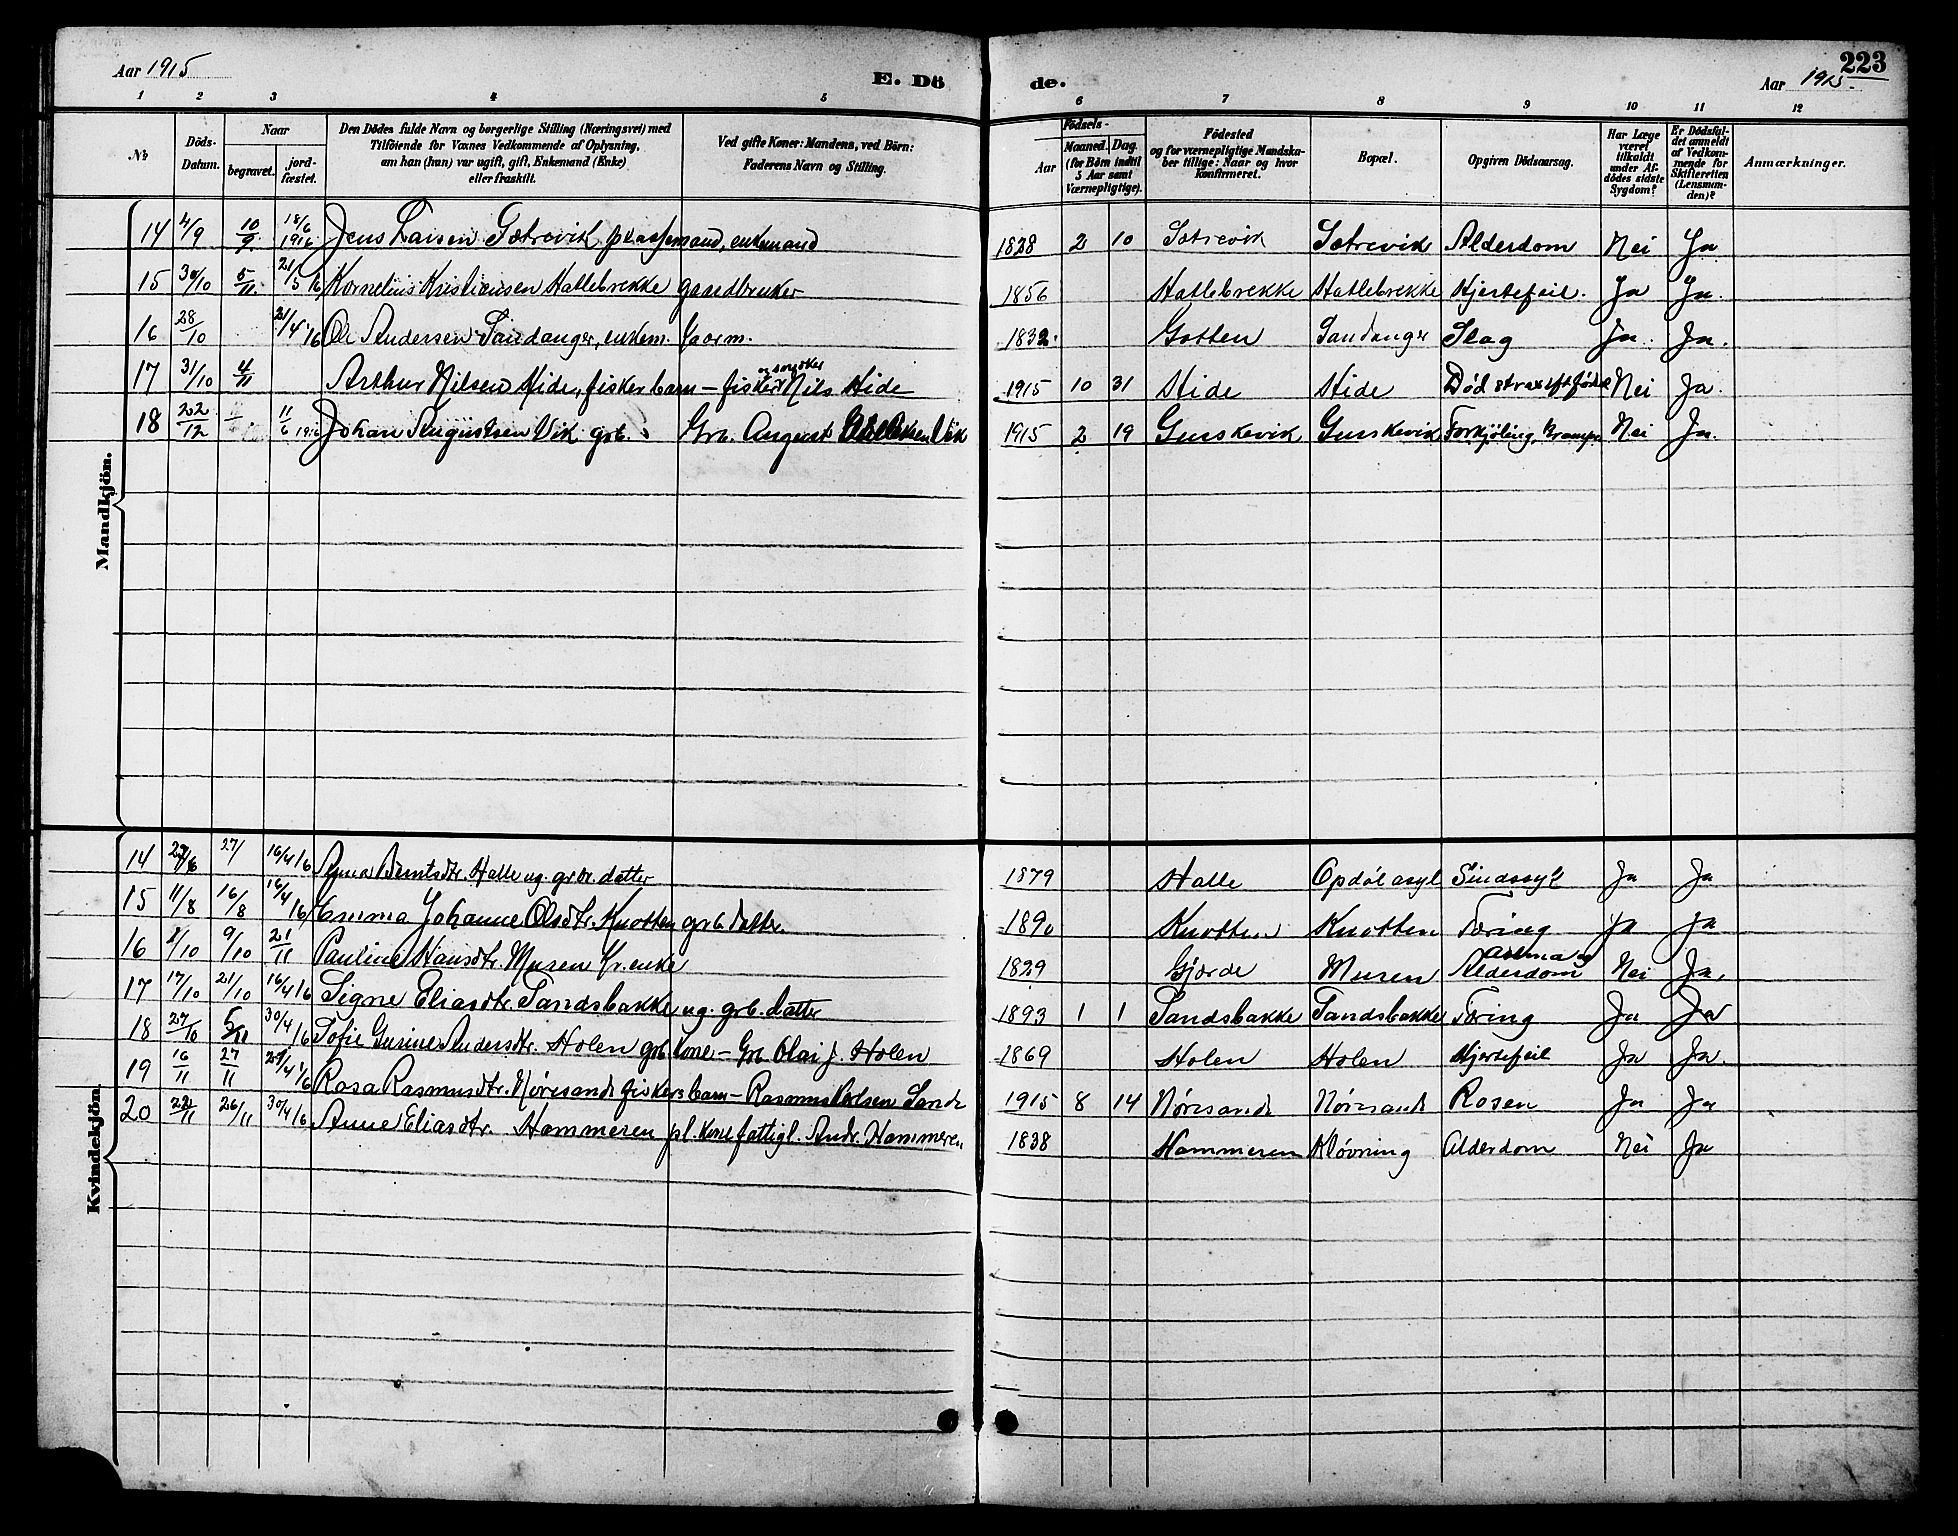 Aar 1915
E. Dö
de.
Aar 1915.
223
1 2 3 4 5 6 7 8 9 10 11 12
No
Döds-Datum.
Naar
begravet.
jord-fæstet.
Den Dödes fulde Navn og borgerlige Stilling (Næringsvei) med Tilföiende for Voxnes Vedkommende af Oplysning, om han (hun) var ugift, gift, Enkemand (Enke) eller fraskilt.
Ved gifte Koner: Mandens, ved Börn: Faderens Navn og Stilling.
Födsels-
Aar
Maaned. Dag.
(for Börn indtil 5 Aar samt Værnepligtige).
Födested og for værnepligtige Mandskaber tillige: Naar og hvor Konfirmeret.
Bopæl.
Opgiven Dödsaarsag.
Har Læge været tilkaldt under Afdödes sidste Sygdom?
Er Dödsfaldet anmeldt af Vedkommende for Skifteretten (Lensmanden)?
Anmærkninger.
Mandkjön.
14 4/9 10/9 18/6 1916 Jens Larsen Sætrevik plassmand, enkemand 1828 2 10 Sætrevik Sætrevik Alderdom Nei Ja
15 30/10 5/11 21/5 16 Kornelius Kristiansen Hatlebrekke gaardbruker 1856 Hatlebrekke Hatlebrekke Hjertefeil. Ja Ja.
16 28/10 21/4 16 Ole Andersen Sandanger, enkem. 1832. Gotten Sandanger Slag Ja Ja.
17 31/10 4/11 Arthur Nilsen Hide, fisker barn – fisker Nils Hide 1915 10 31 Hide Hide Død strax eft føds. Nei Ja.
18 22/12 11/6 1916 Johan Augustsen Vik grb. Grb. August Vik 1915 2 19 Gurskevik Gurskevik Forkjøling, Krampe Nei Ja.
Kvindekjön.
14 27/6 27/ 16/4 16 Berntsdtr. Halle ug. grbr. datter 1879 Halle Opdøl asyl Sindssyk Ja Ja
15 11/8 16/8 16/4 16 Emma Johanne Olsdtr. Knotten grb. datter. 1890 Knotten Knotten Tæring Ja Ja
16 2/10 9/10 21/11 Pauline Hansdtr. Musen kr. enke 1829 Gjerde Musen Astma og Alderdom Nei Ja.
17 17/10 21/10 16/4 16 Signe Eliasdtr. Sandsbakke ug. grb. datter 1893 1 1 Sandsbakke Sandsbakke Tæring Ja Ja
18 27/10 5/11 30/4 16 Sofie Gurine Andersdtr. Holen grb kone – Grb. Olai J. Holen 1869 Holen Holen Hjertefeil Ja Ja.
19 16/11 27/11 24/4 16 Rosa Rasmusdtr. Nøresande fiskers barn – Rasmus Karlsen Sande 1915 8 14 Nøresande Nøresande Rosen Ja Ja
20 22/11 26/11 30/4 16 Anne Eliasdtr. Hammeren pl. kone fattigl. Andr. Hammeren 1838 Hammeren Kløvning Alderdom Nei Ja